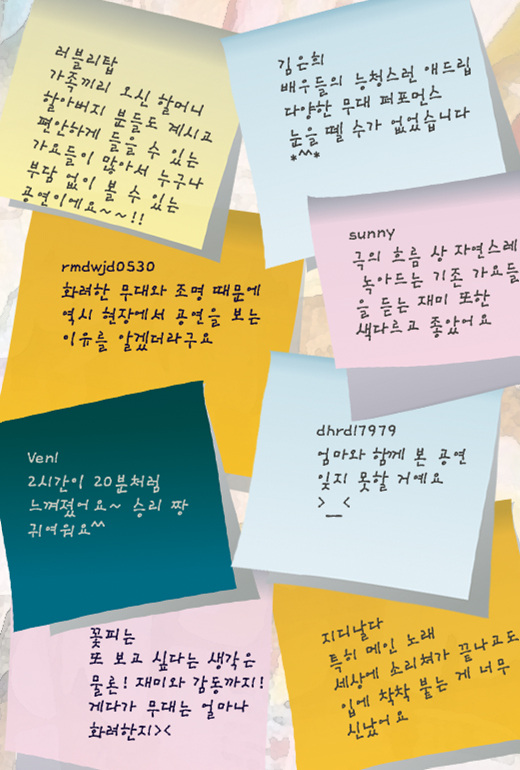 러블리탑
가족끼리 오신 할머니
할아버지 분들도 계시고
편안하게 들을 수 있는
가요들이 많아서 누구나
부담 없이 볼 수 있는
공연이에요~~!!
김은희
배우들의 능청스런 애드립
다양한 무대 퍼포먼스
눈을 뗄 수가 없었습니다
*^^*
sunny
극의 흐름 상 자연스레
녹아드는 기존 가요들
을 듣는 재미 또한
색다르고 좋았어요
rmdwjd0530
화려한 무대와 조명 때문에
역시 현장에서 공연을 보는
이유를 알겠더라구요
Ven!
2시간이 20분처럼
느껴졌어요~ 승리 짱
귀여워요^^
dhrd!7979
엄마와 함께 본 공연
잊지 못할 거예요
>__<
꽃피는
또 보고 싶다는 생각은
물론! 재미와 감동까지!
게다가 무대는 얼마나
화려한지><
지디날다
특히 메인 노래
세상에 소리쳐가 끝나고도
입에 착착 붙는 게 너무
신났어요